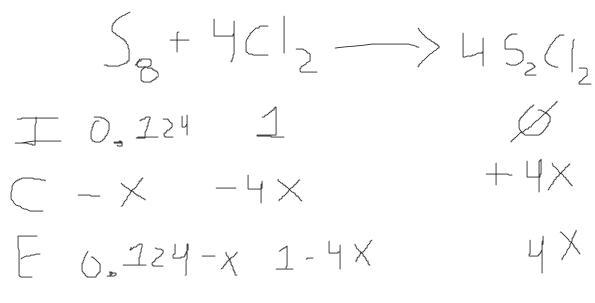 S₈ + 4Cl₂ → 4S₂Cl₂
I 0.124 1 Ø
C -x -4x +4x
E 0.124-x 1-4x 4x